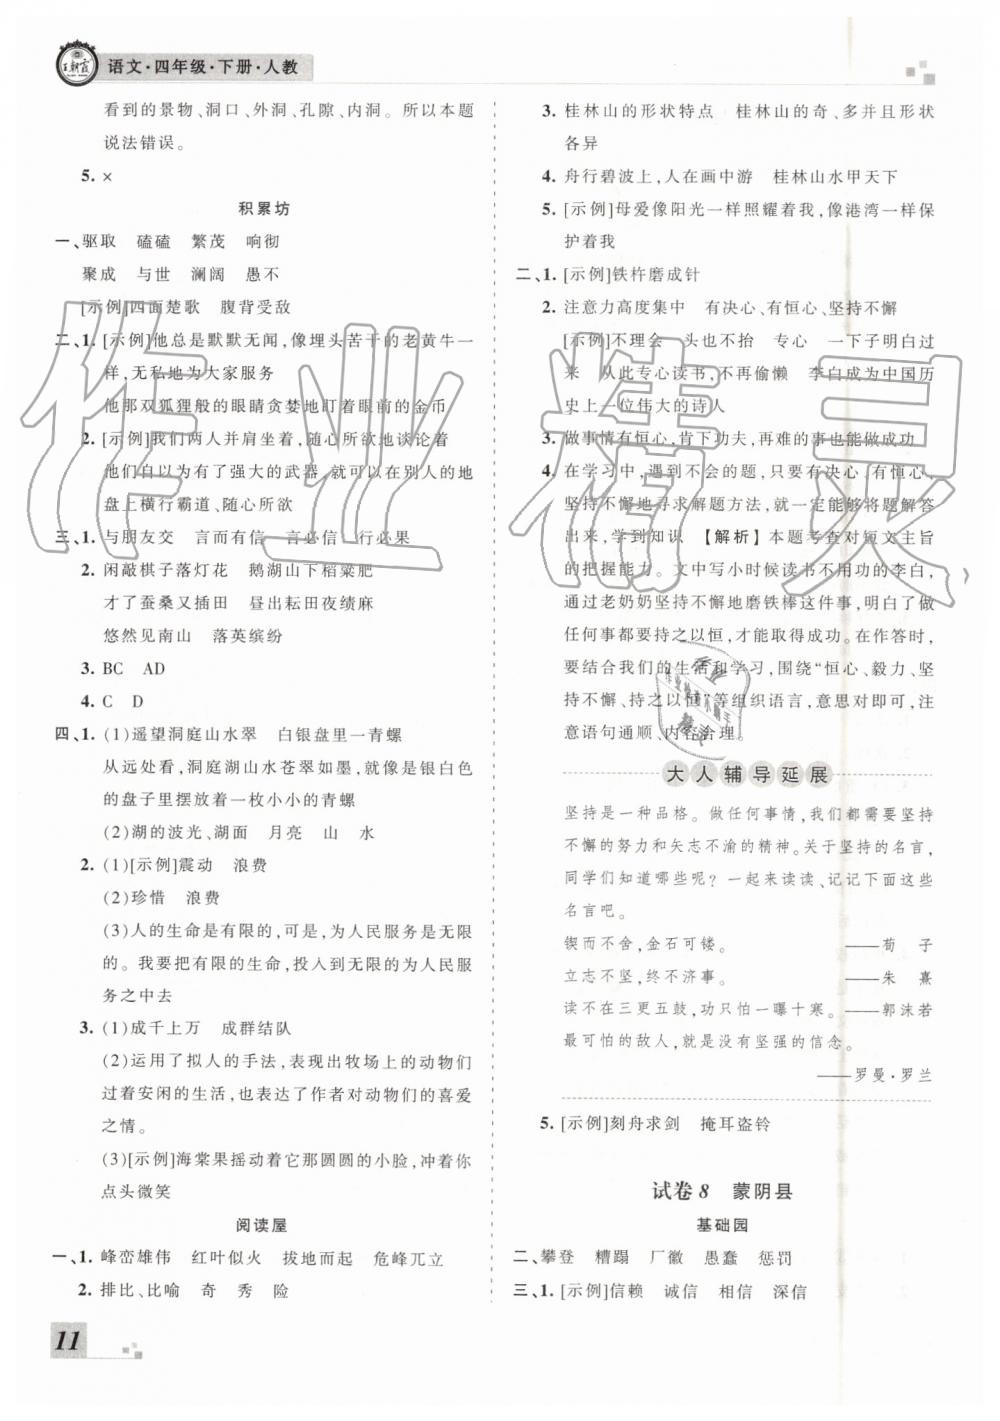 王朝霞
语文·四年级·下册·人教
看到的景物、洞口、外洞、孔隙、内洞。所以本题
说法错误。
5. ×
积累坊
一、驱取 磕磕 繁茂 响彻
聚成 与世 澜阔 愚不
[示例]四面楚歌 腹背受敌
二、1. [示例]他总是默默无闻,像埋头苦干的老黄牛一
样,无私地为大家服务
他那双狐狸般的眼睛贪婪地盯着眼前的金币
2. [示例]我们两人并肩坐着,随心所欲地谈论着
他们自以为有了强大的武器,就可以在别人的地
盘上横行霸道、随心所欲
三、1. 与朋友交 言而有信 言必信 行必果
2. 闲敲棋子落灯花 鹅湖山下稻粱肥
才了蚕桑又插田 昼出耘田夜绩麻
悠然见南山 落英缤纷
3. BC AD
4. C D
四、1. (1)遥望洞庭山水翠 白银盘里一青螺
从远处看,洞庭湖山水苍翠如墨,就像是银白色
的盘子里摆放着一枚小小的青螺
(2)湖的波光、湖面 月亮 山 水
2. (1)[示例]震动 浪费
(2)珍惜 浪费
(3)人的生命是有限的,可是,为人民服务是无限
的。我要把有限的生命,投入到无限的为人民服
务之中去
3. (1)成千上万 成群结队
(2)运用了拟人的手法,表现出牧场上的动物们
过着安闲的生活,也表达了作者对动物们的喜爱
之情。
(3)[示例]海棠果摇动着它那圆圆的小脸,冲着你
点头微笑
阅读屋
一、1. 峰峦雄伟 红叶似火 拔地而起 危峰兀立
2. 排比、比喻 奇 秀 险
3. 桂林山的形状特点 桂林山的奇、多并且形状
各异
4. 舟行碧波上,人在画中游 桂林山水甲天下
5. [示例]母爱像阳光一样照耀着我,像港湾一样保
护着我
二、1. [示例]铁杵磨成针
2. 注意力高度集中 有决心,有恒心,坚持不懈
[示例]不理会 头也不抬 专心 一下子明白过
来 从此专心读书,不再偷懒 李白成为中国历
史上一位伟大的诗人
3. 做事情有恒心,肯下功夫,再难的事也能做成功
4. 在学习中,遇到不会的题,只要有决心,有恒心,
坚持不懈地寻求解题方法,就一定能够将题解答
出来,学到知识 【解析】本题考查对短文主旨
的把握能力。文中写小时候读书不用功的李白,
通过老奶奶坚持不懈地磨铁棒这件事,明白了做
任何事都要持之以恒,才能取得成功。在作答时,
要结合我们的生活和学习,围绕“恒心、毅力、坚
持不懈、持之以恒”等组织语言,意思对即可,注
意语句通顺、内容合理。
大人辅导延展
坚持是一种品格。做任何事情,我们都需要坚持
不懈的努力和矢志不渝的精神。关于坚持的名言,
同学们知道哪些呢?一起来读读、记记下面这些
名言吧。
锲而不舍,金石可镂。 ——荀 子
立志不坚,终不济事。 ——朱 熹
读不在三更五鼓,功只怕一曝十寒。——郭沫若
最可怕的敌人,就是没有坚强的信念。
——罗曼·罗兰
5. [示例]刻舟求剑 掩耳盗铃
试卷8 蒙阴县
基础园
二、攀登 糟蹋 厂徽 愚蠢 惩罚
三、1. [示例]信赖 诚信 相信 深信
11
作业精灵